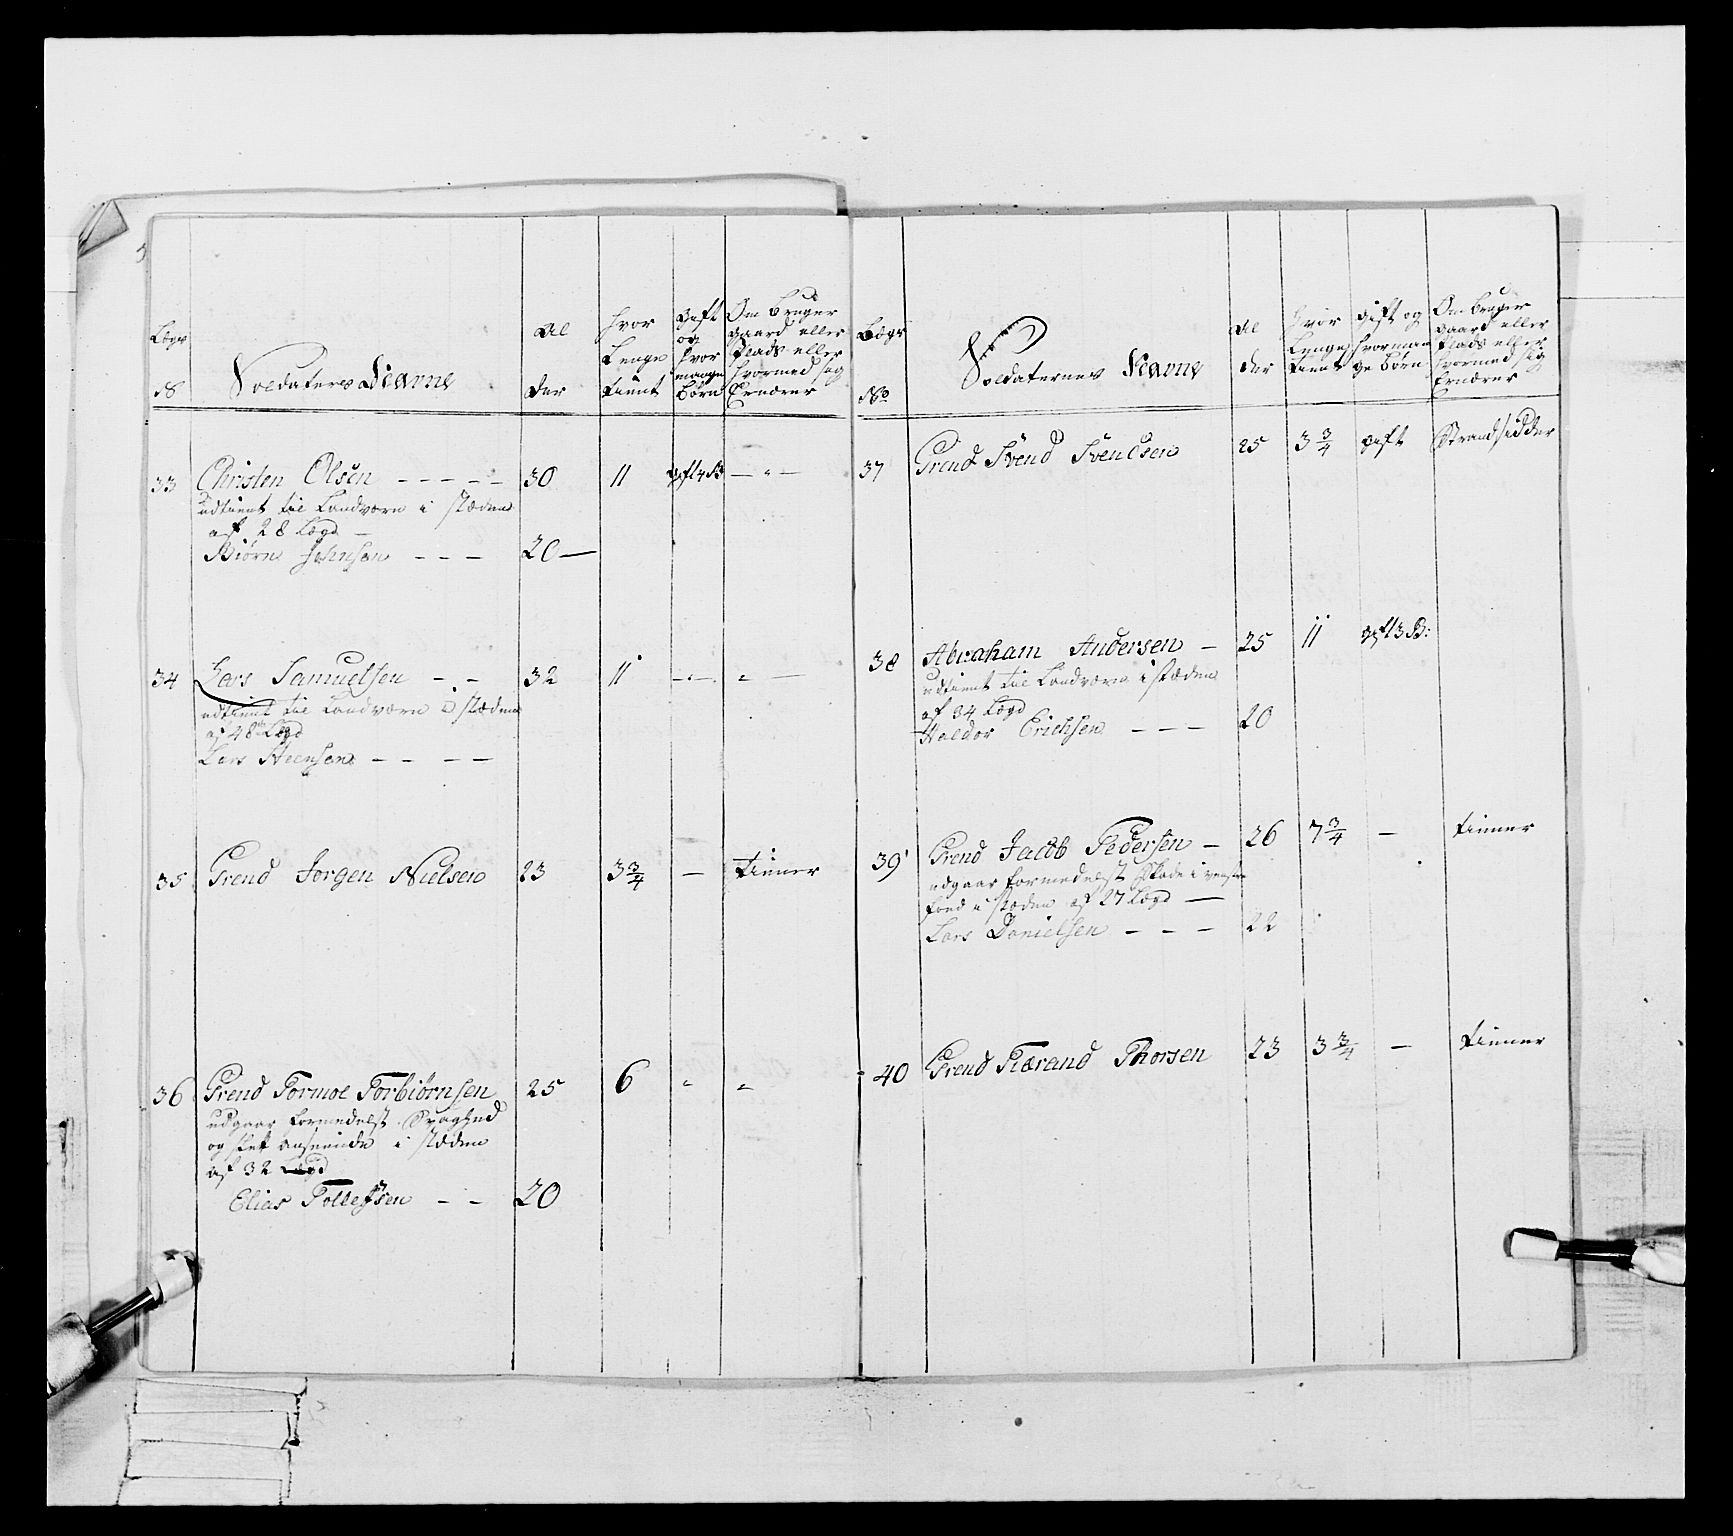 Lægs
No
Soldaters Navne
Al
der
Hvor
Lenge
tient
Gift
og
Hvor
mange
Børn
Om bruger
gaard eller
Plads eller
Hvormed sig
Ernærer
33 Christen Olsen - - - - - 30 11 gift 4 B — " —
udtient til Landværn i stæden
af 28 Lægd —
Biørn Johnsen - - - 20 —
34 Lars Samuelsen - - - 32 11 — " — " —
udtient til Landværn i stæden
af 48 Lægd
Lars Steensen - - - -
35 Grend Jørgen Nielsen 23 3 3/4 — tienner
36 Grend Tormoe Torbiørnsen 25 6 " "
udgaar formedelst Svaghed
og slet anseende i stæden
af 32 Lægd
Elias Tollefsen - - 20
Lægs
No
Soldaternes Navne
Al
der
Hvor
Lenge
tient
Gift og
Hvorman
ge Børn
Om bruger
gaard eller
Plads eller
Hvormed sig
Ernærer
37 Grend Svend Svendsen 25 3 3/4 gift Strandsidder
38 Abraham Andersen — 25 11 gift 3 B:
udtient til Landværn i stæden
af 34 Lægd
Haldor Erichsen - - - 20
39 Grend Jacob Pedersen — 26 7 3/4 — tienner
udgaar formedelst Skade i venstre
foed i stæden af 27 Lægd —
Lars Danielsen - - - 22
40 Grend Tiærand Thorsen 23 3 3/4 — tienner